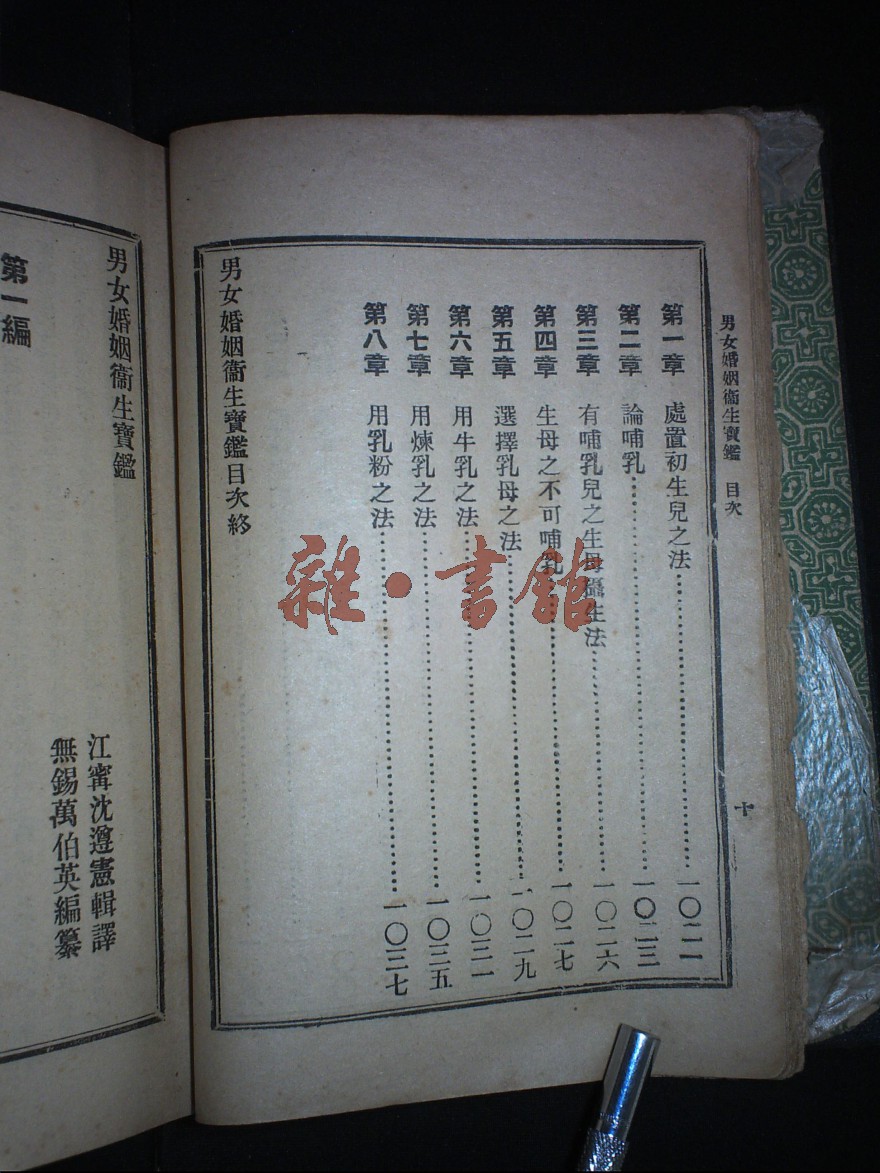 男女婚姻衞生寶鑑　目次
十
第一章　處置初生兒之法……一〇二一
第二章　論哺乳……一〇二三
第三章　有哺乳兒之生母攝生法……一〇二六
第四章　生母之不可哺乳……一〇二七
第五章　選擇乳母之法……一〇二九
第六章　用牛乳之法……一〇三一
第七章　用煉乳之法……一〇三五
第八章　用乳粉之法……一〇三七
男女婚姻衞生寶鑑目次終
男女婚姻衞生寶鑑
江寗沈遵憲輯譯
無錫萬伯英編纂
第一編
雜·書館